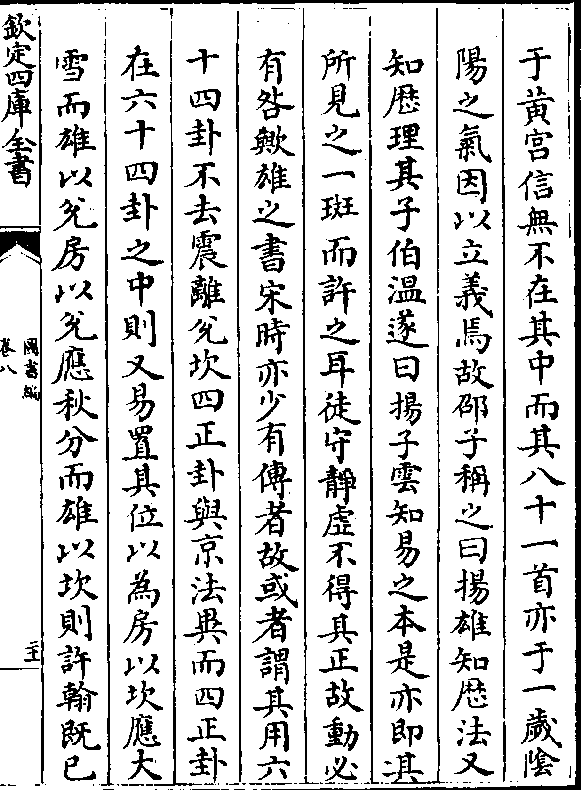 于黄宫信無不在其中而其八十一首亦于一歲陰
陽之氣因以立義焉故邵子稱之曰揚雄知厯法又
知厯理其子伯温遂曰揚子雲知易之本是亦即其
所見之一斑而許之耳徒守靜虚不得其正故動必
有咎歟雄之書宋時亦少有傳者故或者謂其用六
十四卦不去震離兊坎四正卦與京法異而四正卦
在六十四卦之中則又易置其位以為房以坎應大
雪而雄以兊房以兊應秋分而雄以坎則許翰既已
欽定四庫全書
圖書編
卷八